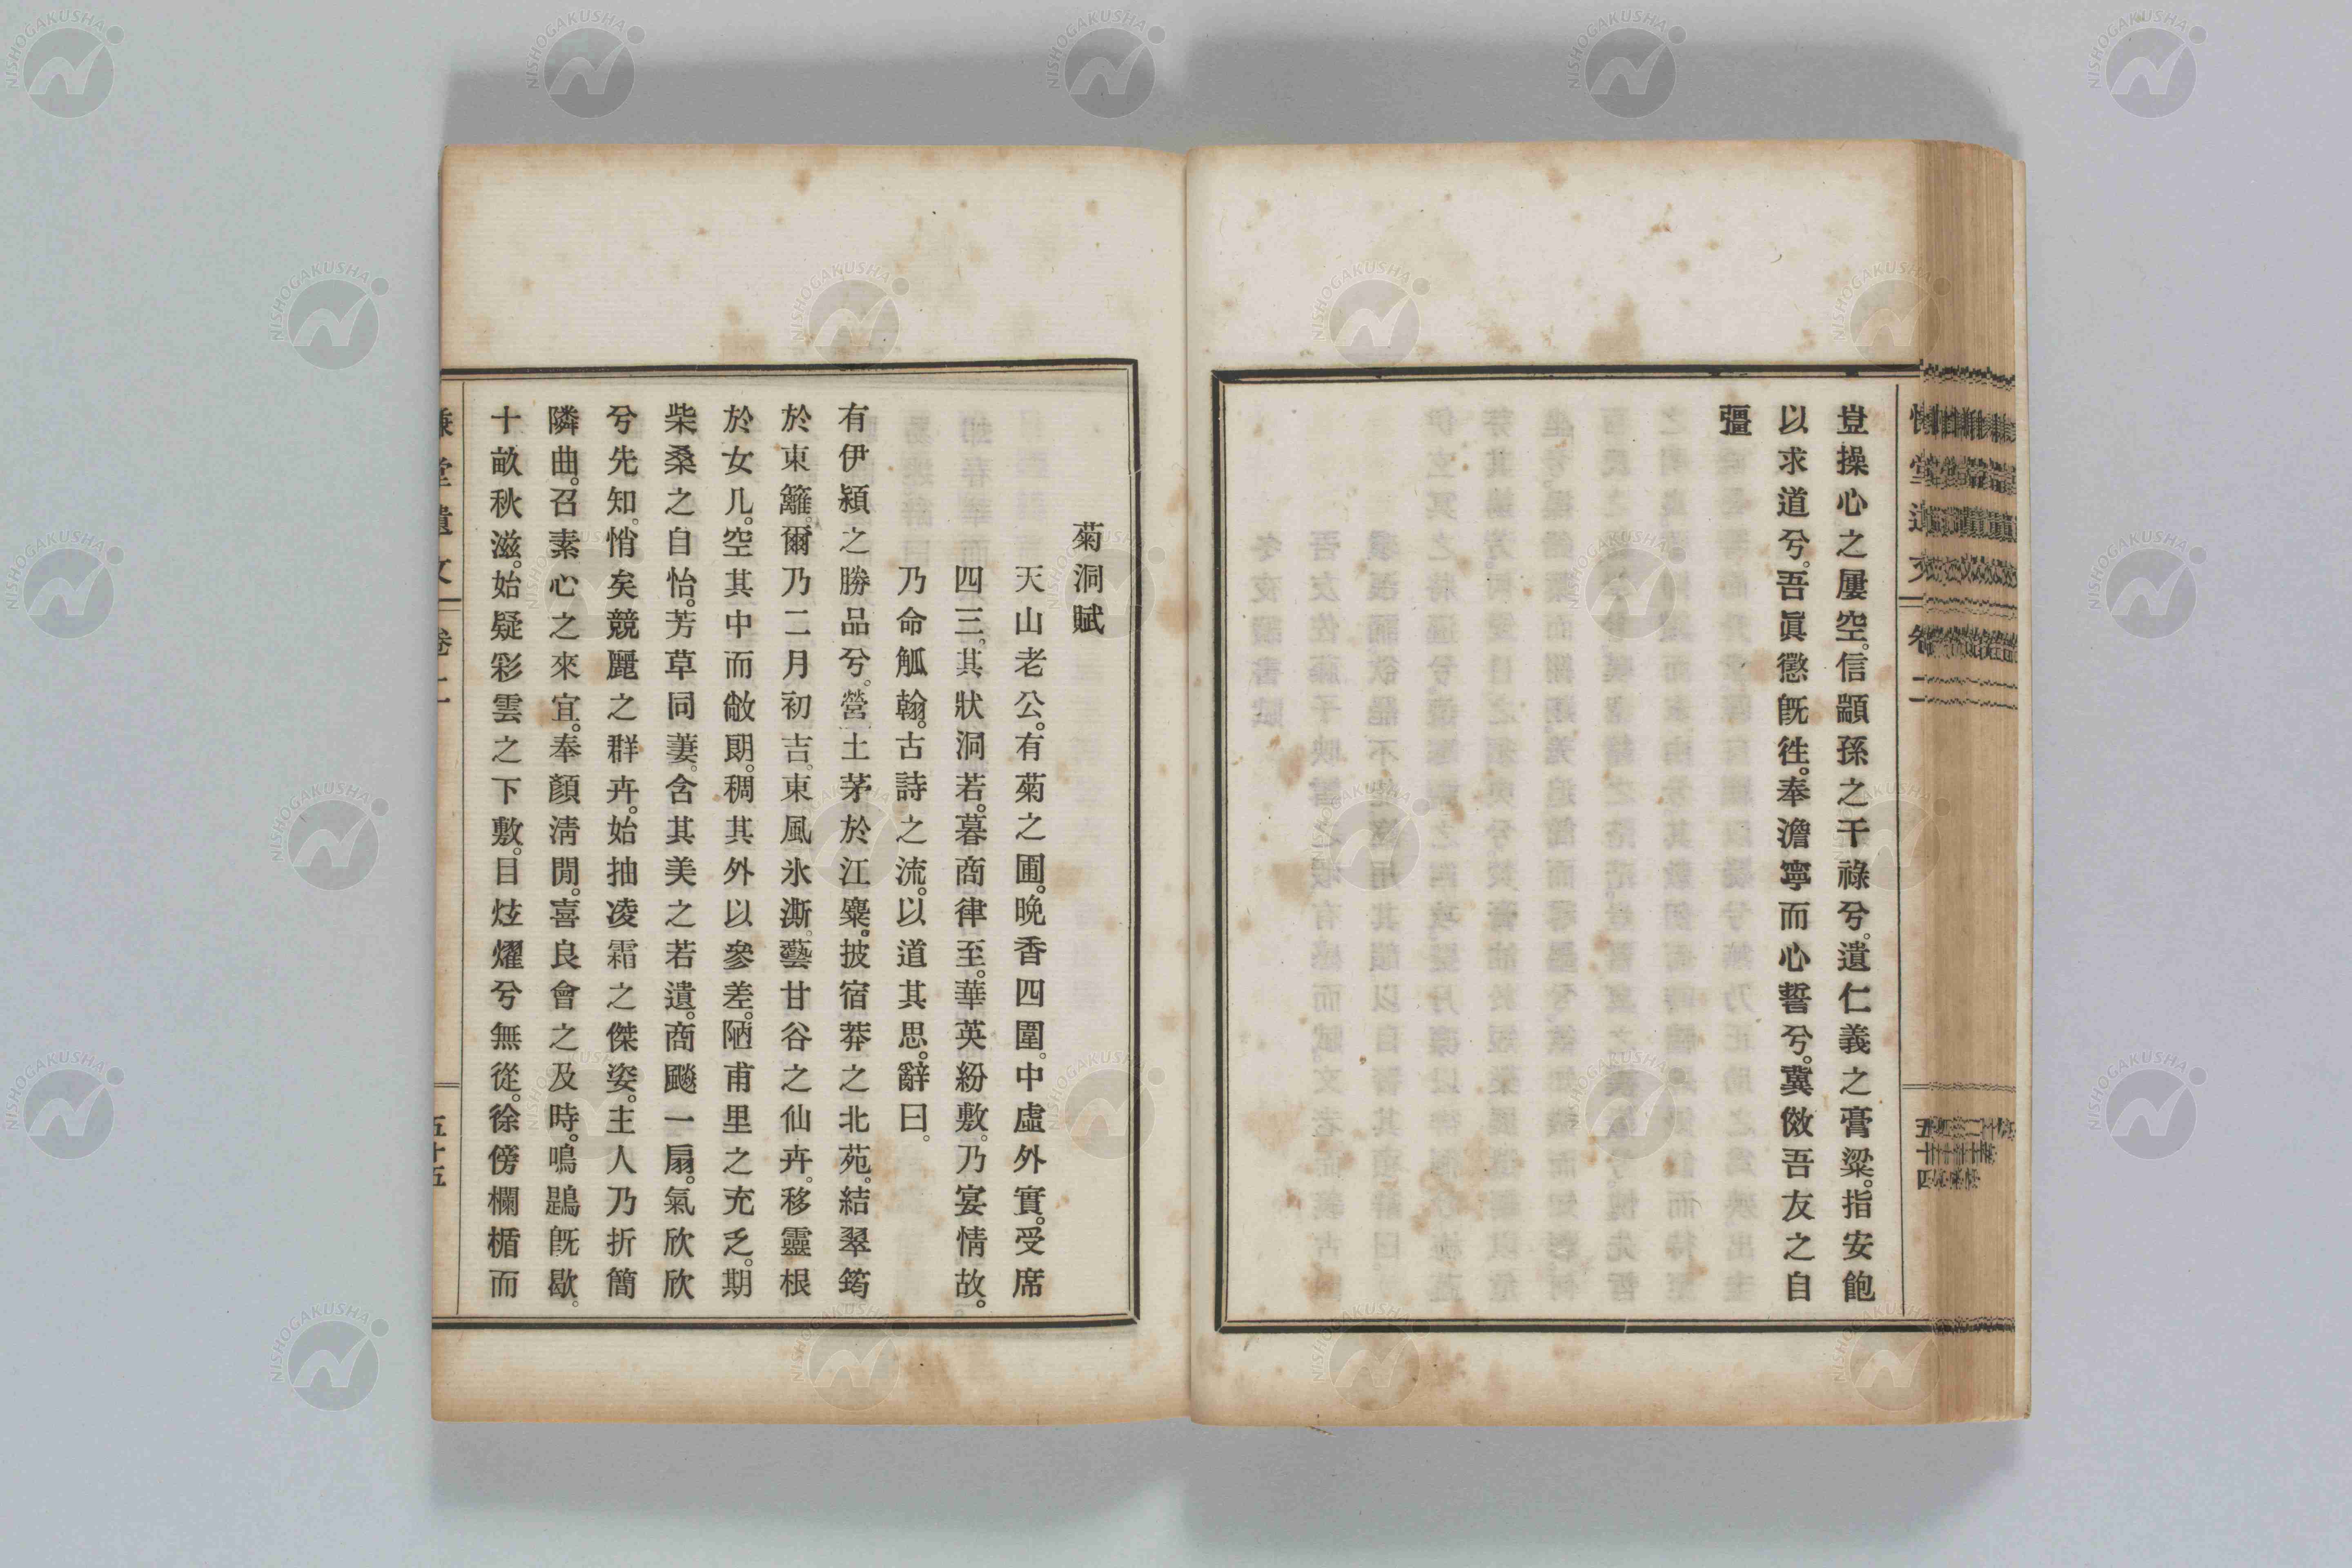 豈操心之屢空。信顓孫之干祿兮。遺仁義之膏粱。指安飽
以求道兮。吾眞懲旣徃。奉澹寧而心誓兮。冀傚吾友之自
彊
五十四
菊洞賦
天山老公。有菊之圃。晩香四圍。中虛外實。受席
四三。其狀洞若。暮商律至。華英紛敷。乃宴情故。
乃命觚翰。古詩之流。以道其思。辭曰。
有伊潁之勝品兮。營土茅於江麋。披宿莽之北苑。結翠筠
於東籬。爾乃二月初吉。東風氷澌。藝甘谷之仙卉。移靈根
於女几。空其中而敞朗。稠其外以參差。陋甫里之充乏。期
柴桑之自怡。芳草同萋。含其美之若遺。商飈一扇。氣欣欣
兮先知。悄矣競麗之群卉。始抽凌霜之傑姿。主人乃折簡
隣曲。召素心之來宜。奉顏淸閒。喜良會之及時。鳴鶗旣歇。
十畝秋滋。始疑彩雲之下敷。目炫燿兮無從。徐傍欄楯而
慊堂遺文 卷二
五十五
NISHOGAKUSHA